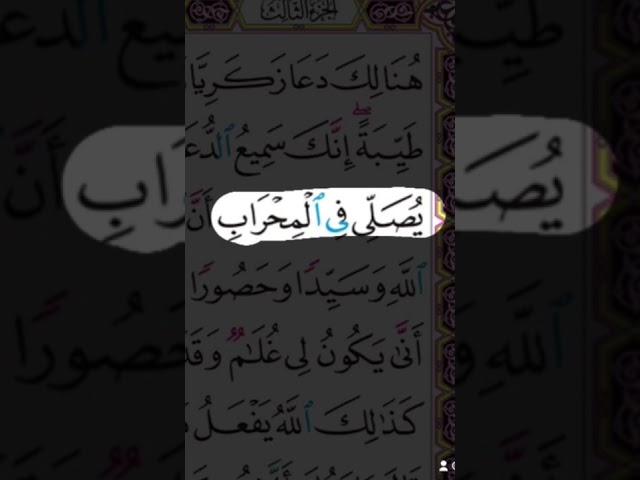 الجزء الثالث
هُنَالِكَ دَعَا زَكَرِيَّا
طَيِّبَةً ۖ إِنَّكَ سَمِيعُ ٱلدُّعَ
يُصَلِّي فِي ٱلْمِحْرَابِ أَنَّ
ٱللَّهِ وَسَيِّدًا وَحَصُورًا
أَنَّىٰ يَكُونُ لِي غُلَٰمٌ وَقَدْ
كَذَٰلِكَ ٱللَّهُ يَفْعَلُ